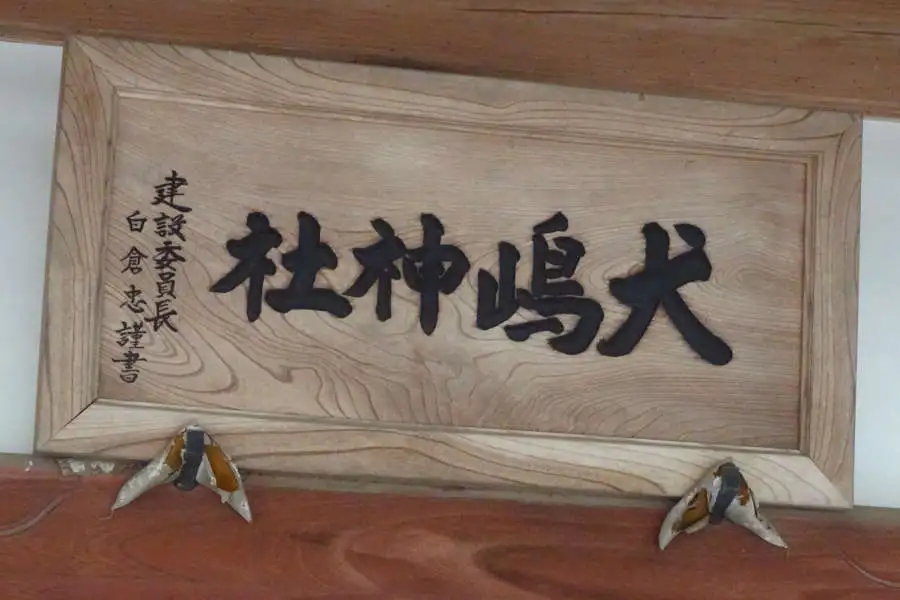 犬嶋神社
建設委員長
白倉忠謹書